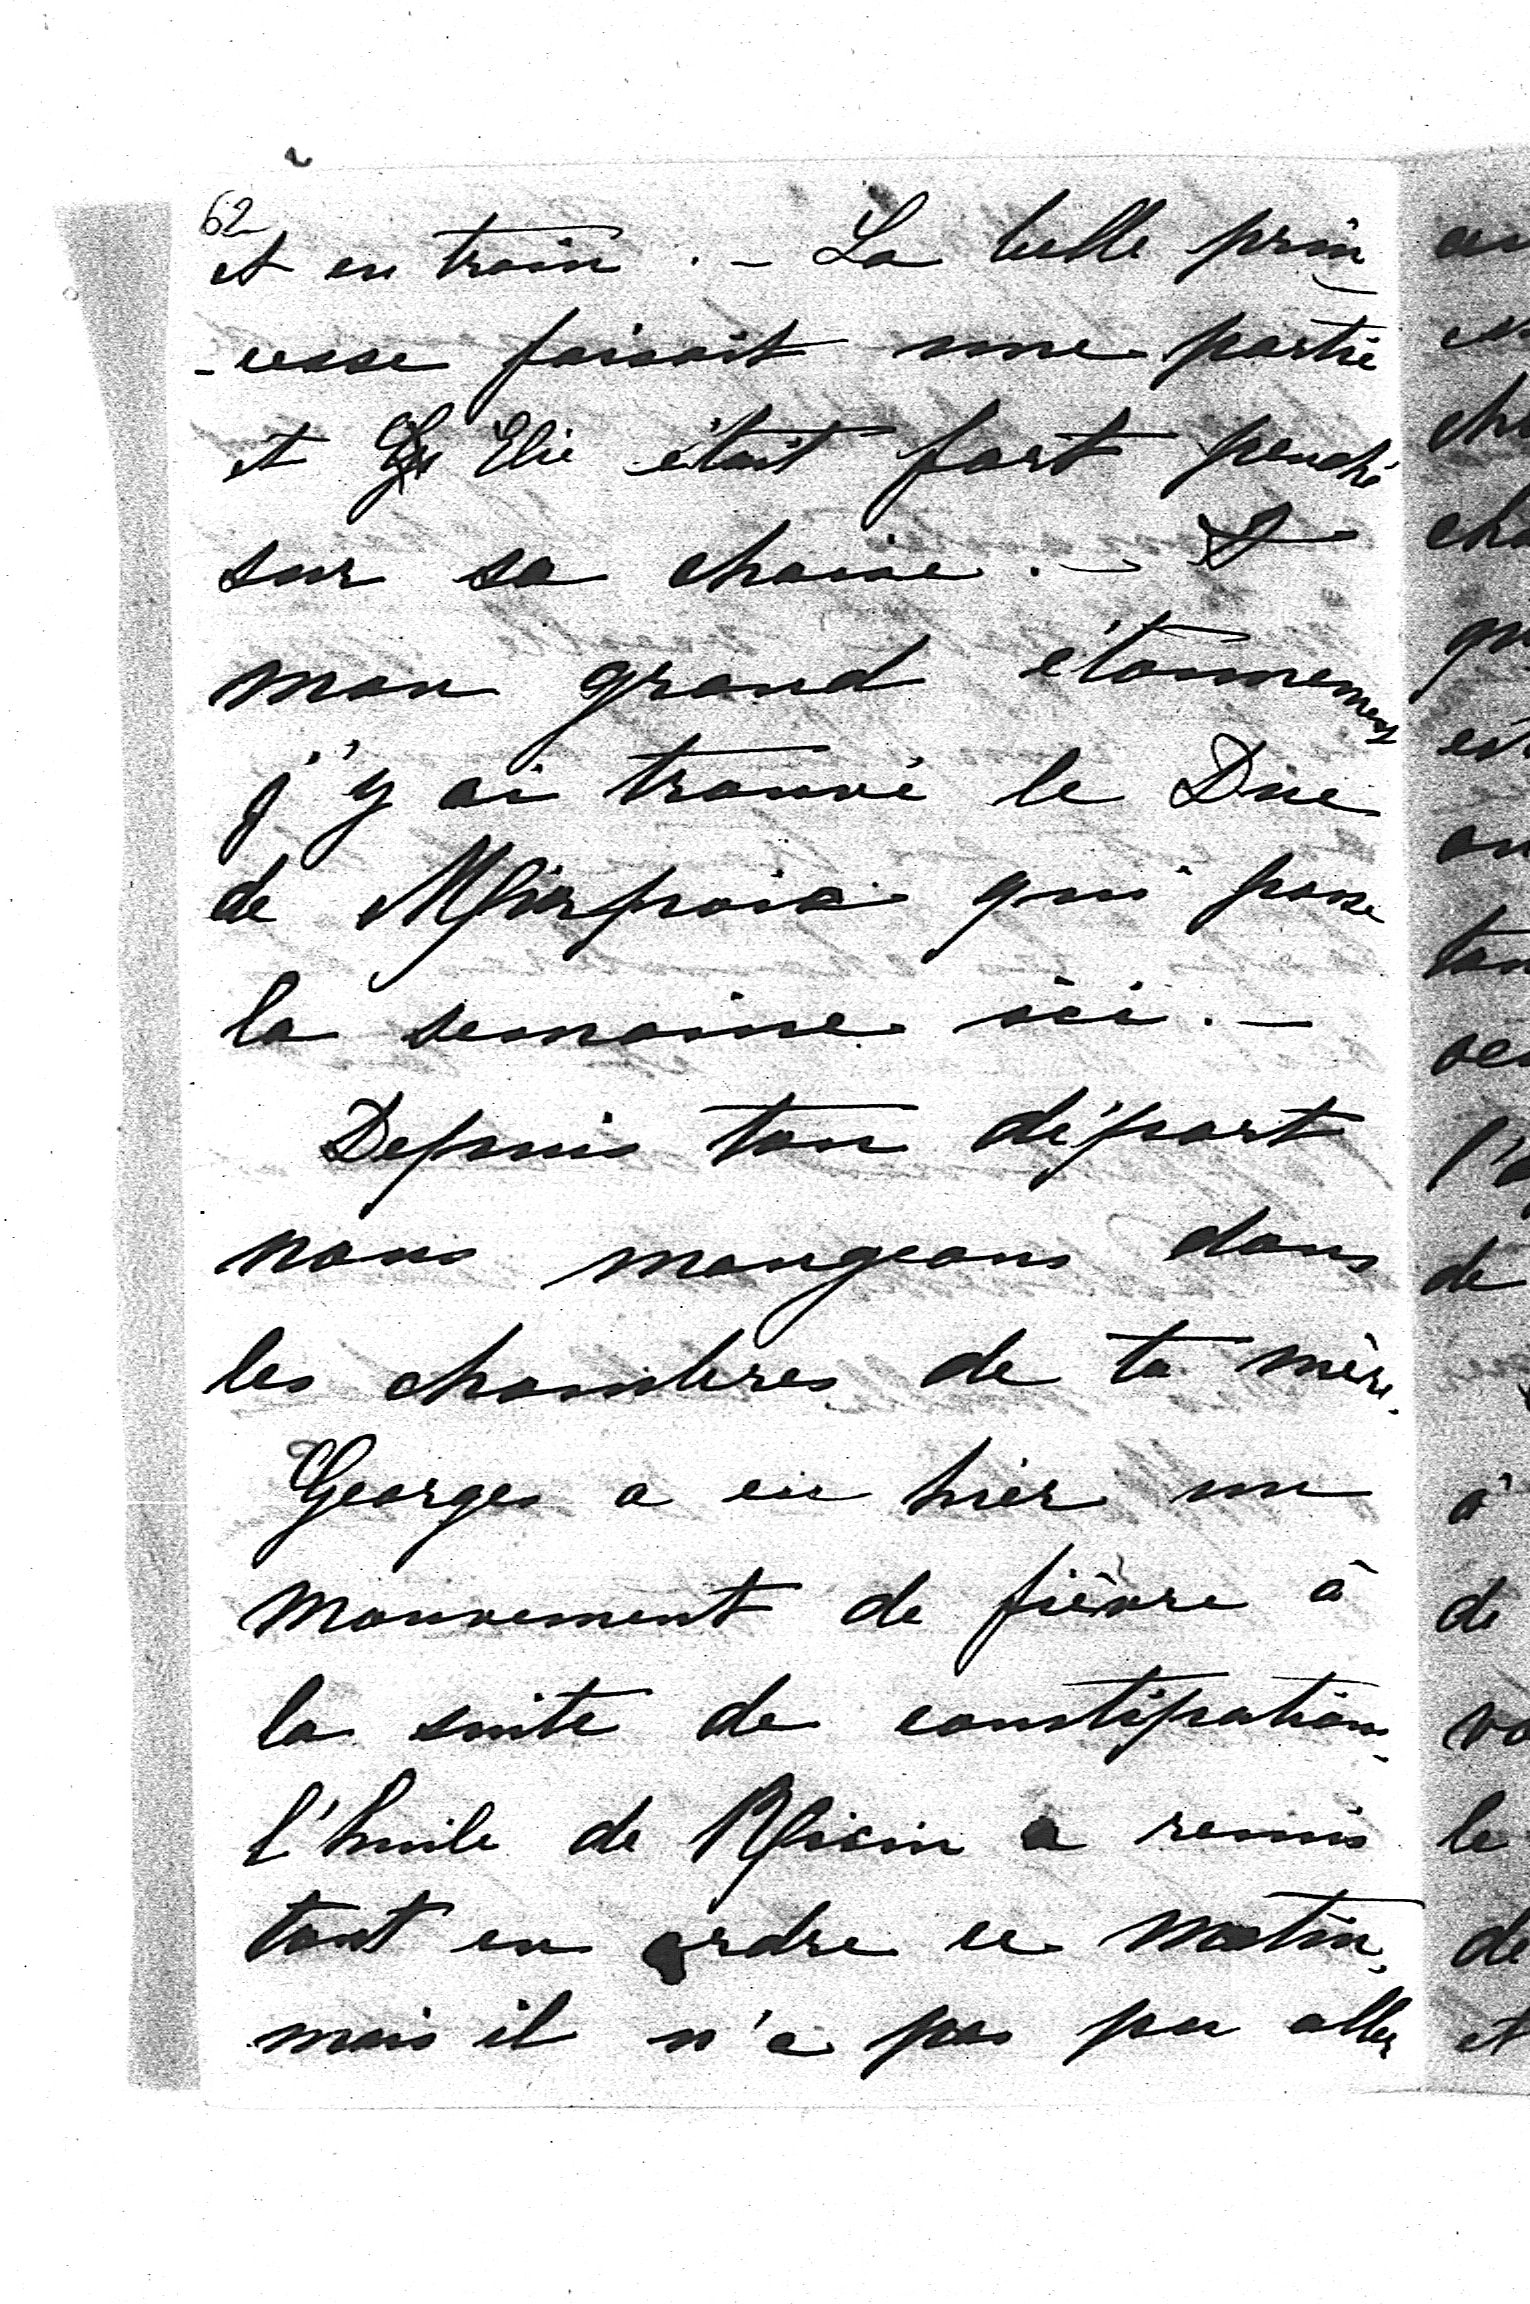 62
et en train. — La belle prin
-cesse faisait une partie
et Elie était fort penché
sur sa chaise. — A
mon grand étonnement
j'y ai trouvé le Duc
de Mirpoix qui passe
la semaine ici. —
Depuis ton départ
nous mangeons dans
les chambres de ta mère.
Georges a eu hier un
mouvement de fièvre à
la suite de constipation,
l'huile de Ricin a remis
tout en ordre ce matin,
mais il n'a pas pu aller